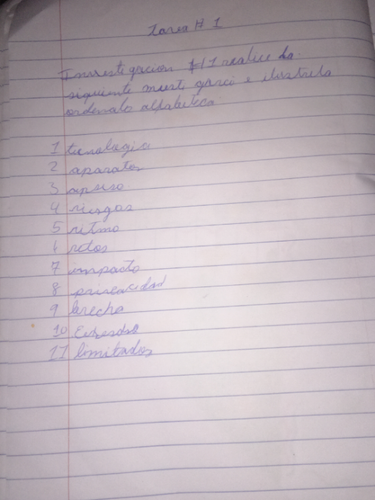 Tarea # 1
Investigacion #1 realice la
siguiente investigacion e ilustrela
ordenalo alfabetica
1 tecnologia
2 aparatos
3
4 riesgos
5 ritmo
6 retos
7 impacto
8 privacidad
9 brecha
10
11 limitados